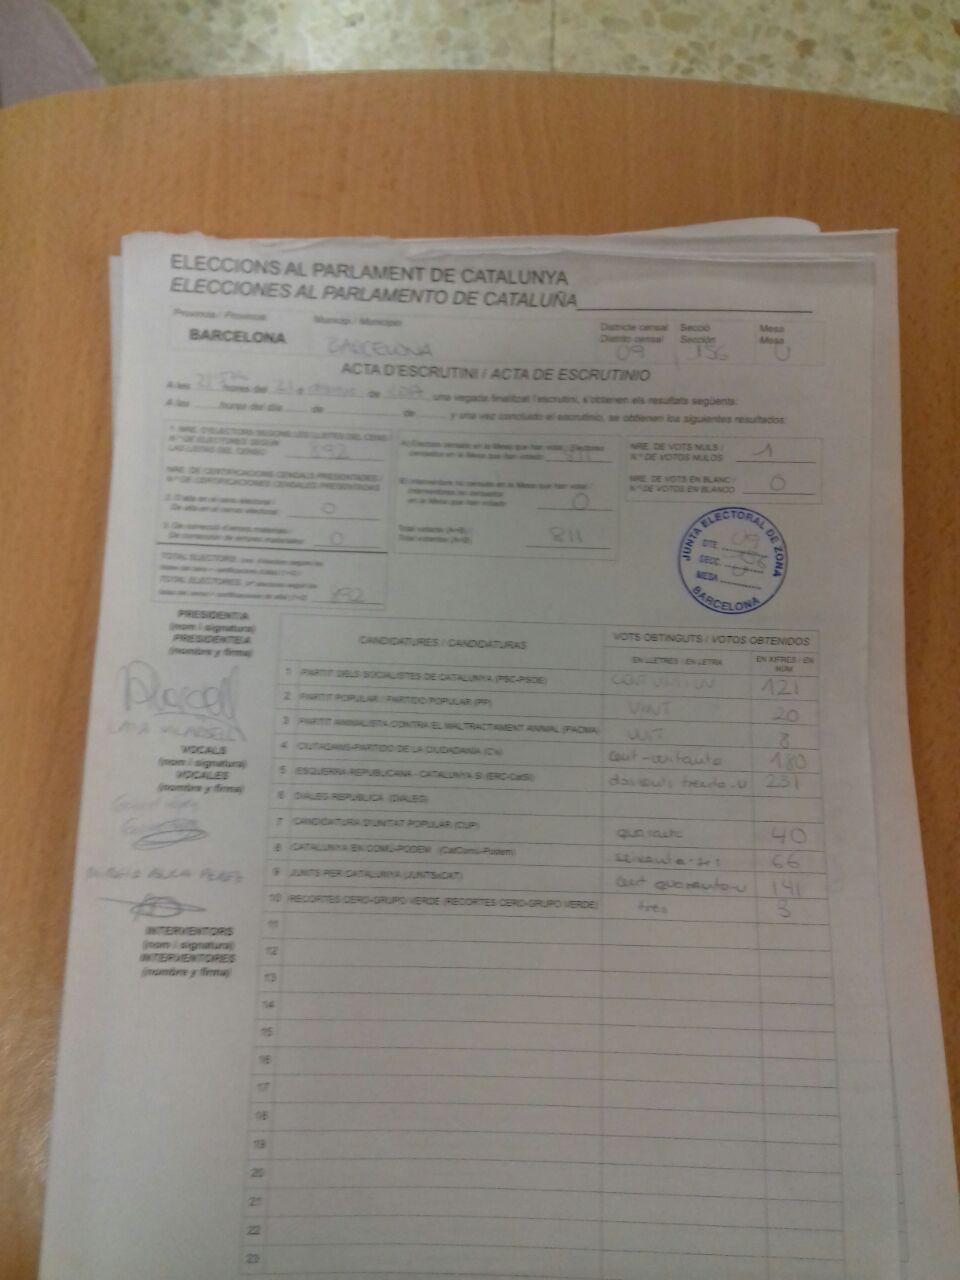 ELECCIONS AL PARLAMENT DE CATALUNYA
ELECCIONES AL PARLAMENTO DE CATALUÑA
Província / Provincia
Municipi / Municipio
Districte censal
Distrito censal
Secció
Sección
Mesa
Mesa
BARCELONA
BARCELONA
09
156
U
ACTA D'ESCRUTINI / ACTA DE ESCRUTINIO
A les hores del 21 de de 2017, una vegada finalitzat l'escrutini, s'obtenen els resultats següents:
A las ........ horas del día ........ de ........ de ........ y una vez concluido el escrutinio, se obtienen los siguientes resultados:
1. NRE. D'ELECTORS SEGONS LES LLISTES DEL CENS
N.º DE ELECTORES SEGÚN
LAS LISTAS DEL CENSO 892
NRE. DE CERTIFICACIONS CENSALS PRESENTADES /
N.º DE CERTIFICACIONES CENSALES PRESENTADAS
2. D'alta en el cens electoral /
De alta en el censo electoral 0
3. De correcció d'errors materials /
De corrección de errores materiales 0
TOTAL ELECTORS
TOTAL ELECTORES
892
A) Electors censats en la Mesa que han votat / Electores
censados en la Mesa que han votado 811
B) Interventors no censats en la Mesa que han votat /
Interventores no censados
en la Mesa que han votado 0
Total votants (A+B) /
Total votantes (A+B) 811
NRE. DE VOTS NULS /
N.º DE VOTOS NULOS 1
NRE. DE VOTS EN BLANC /
N.º DE VOTOS EN BLANCO 0
JUNTA ELECTORAL DE ZONA
DTE. 09
SECC. 156
MESA U
BARCELONA
PRESIDENT/A
(nom i signatura)
PRESIDENTE/A
(nombre y firma)
VOCALS
(nom i signatura)
VOCALES
(nombre y firma)
INTERVENTORS
(nom i signatura)
INTERVENTORES
(nombre y firma)
CANDIDATURES / CANDIDATURAS
VOTS OBTINGUTS / VOTOS OBTENIDOS
EN LLETRES / EN LETRA
EN XIFRES / EN NÚM
1 PARTIT DELS SOCIALISTES DE CATALUNYA (PSC-PSOE) CENT VINT-I-UN 121
2 PARTIT POPULAR / PARTIDO POPULAR (PP) VINT 20
3 PARTIT ANIMALISTA CONTRA EL MALTRACTAMENT ANIMAL (PACMA) VUIT 8
4 CIUTADANS-PARTIDO DE LA CIUDADANÍA (C's) cent-vuitanta 180
5 ESQUERRA REPUBLICANA - CATALUNYA SÍ (ERC-CatSí) doscents trenta-u 231
6 DIÀLEG REPÚBLICA (DIÀLEG)
7 CANDIDATURA D'UNITAT POPULAR (CUP) quaranta 40
8 CATALUNYA EN COMÚ-PODEM (CatComú-Podem) seixanta-sis 66
9 JUNTS PER CATALUNYA (JUNTSxCAT) cent quaranta-u 141
10 RECORTES CERO-GRUPO VERDE (RECORTES CERO-GRUPO VERDE) tres 3
11
12
13
14
15
16
17
18
19
20
21
22
23